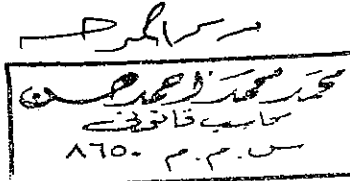 محمد محمد أحمد حسن
محاسب قانوني
س.م.م ٨٦٥٠